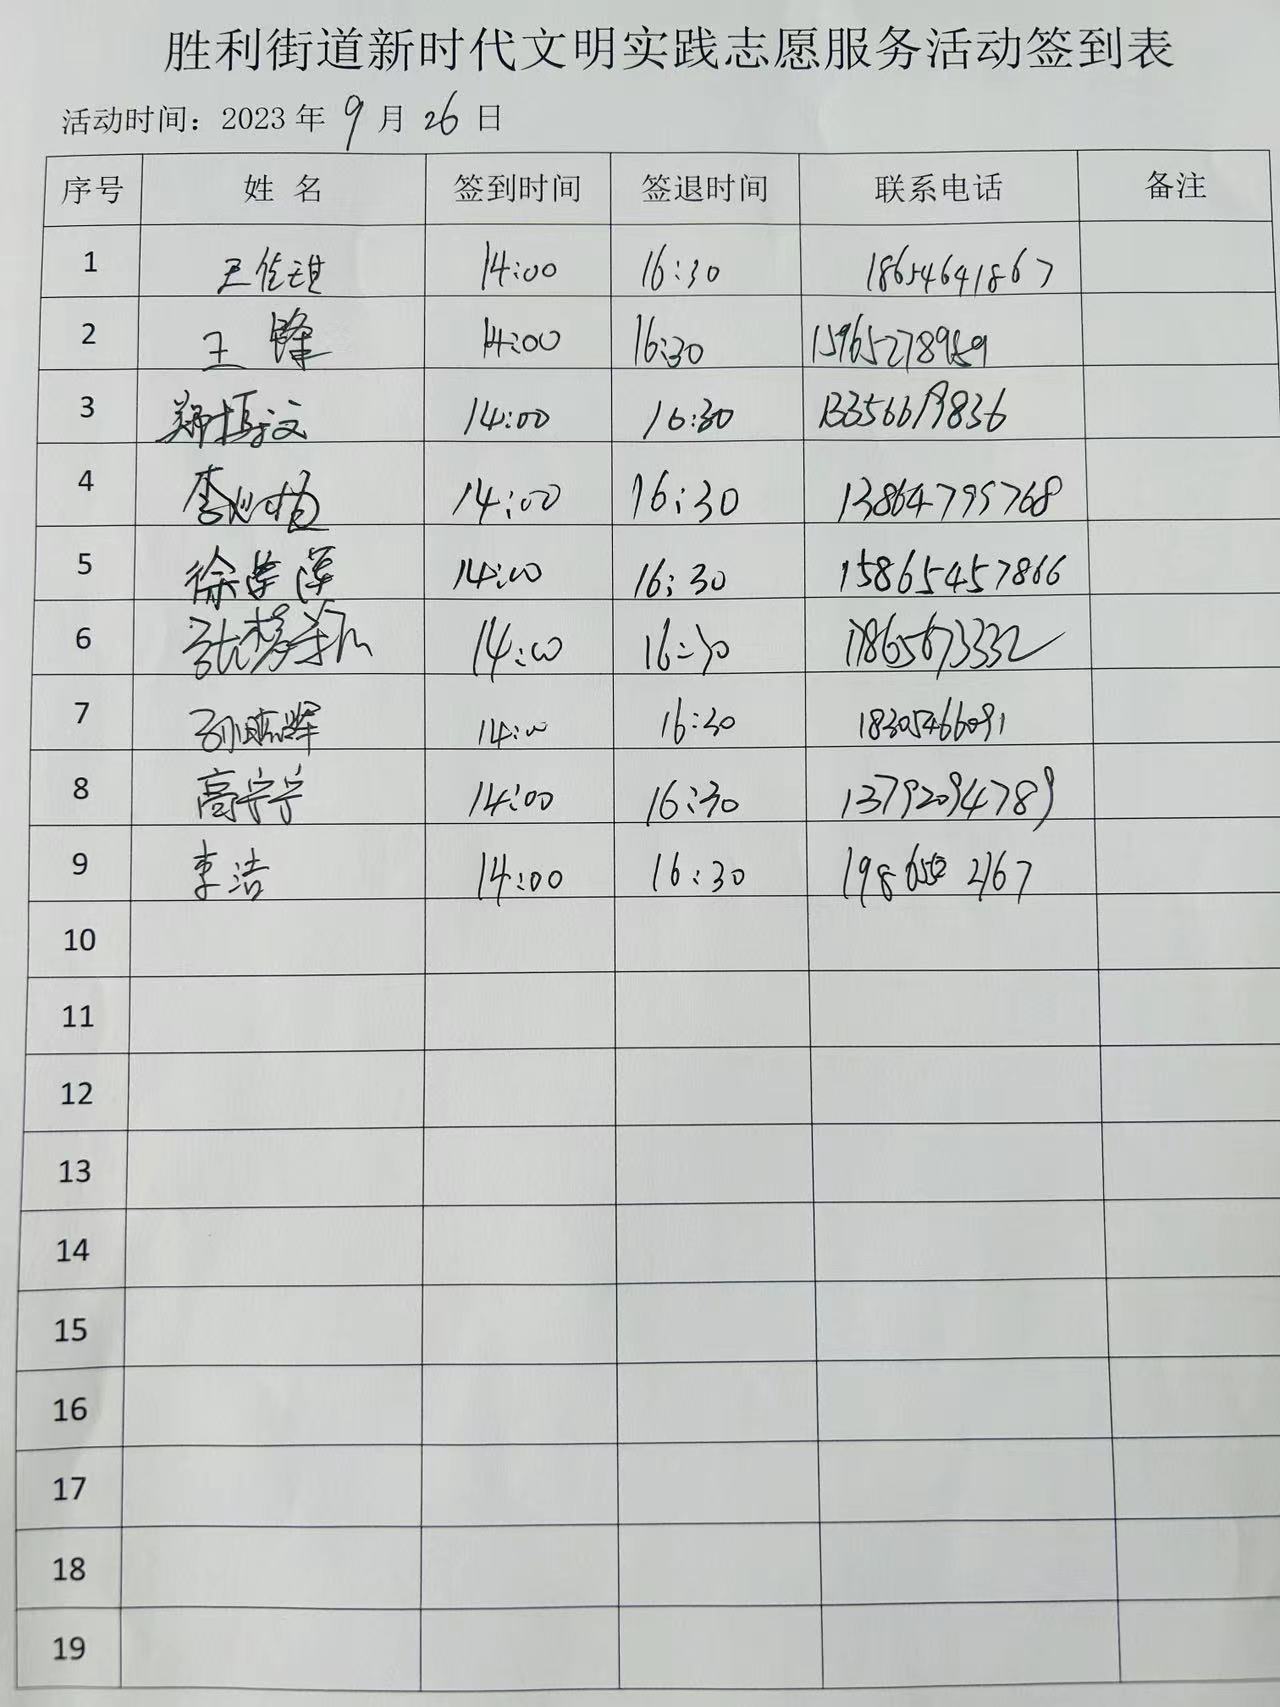 胜利街道新时代文明实践志愿服务活动签到表
活动时间：2023 年 9 月 26 日
序号 姓 名 签到时间 签退时间 联系电话 备注
1 王佳琪 14:00 16:30 18654641867
2 王峰 14:00 16:30 15965278959
3 郑文 14:00 16:30 13356619836
4 李 14:00 16:30 13864795768
5 徐 萍 14:00 16:30 15865457866
6 张 14:00 16:30 17865673332
7 孙晖 14:00 16:30 18305466091
8 高宁宁 14:00 16:30 13792094789
9 李洁 14:00 16:30 198 2167
10
11
12
13
14
15
16
17
18
19